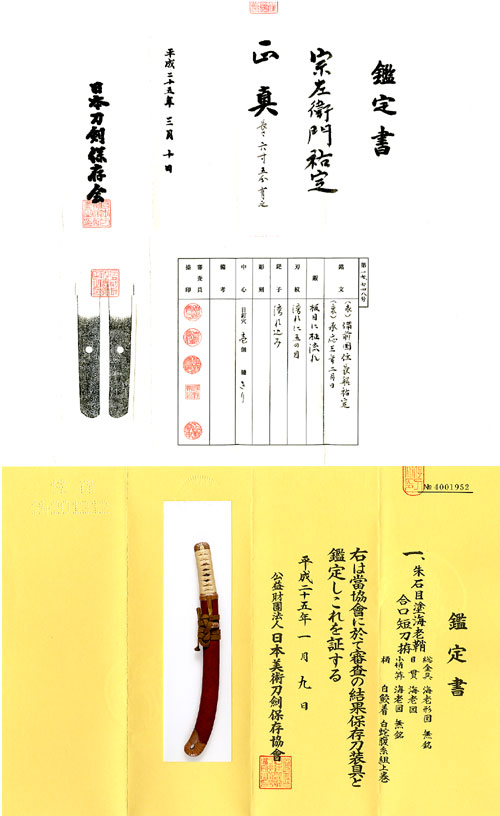 鑑定書
宗左衛門祐定
正真
長サ六寸五分有之
平成二十五年 三月 十日
日本刀剣保存会
銘文
(表)備前国住長船祐定
(裏)承応三年二月日
鍛
板目に柾流れ
刃紋
湾れに互の目
鋩子
湾れ込み
彫刻
中心
目釘穴 壱個 鑢 きり
備考
審査員
協印
№ 4001952
鑑定書
一、朱石目塗海老鞘
合口短刀拵
総金具 海老形図 無銘
目貫 海老図
小柄笄 海老図 無銘
柄 白鮫着 白蛇腹糸組上巻
右は當協會に於て審査の結果保存刀装具と
鑑定しこれを証する
平成二十五年 一月 九日
公益財團法人 日本美術刀劍保存協會